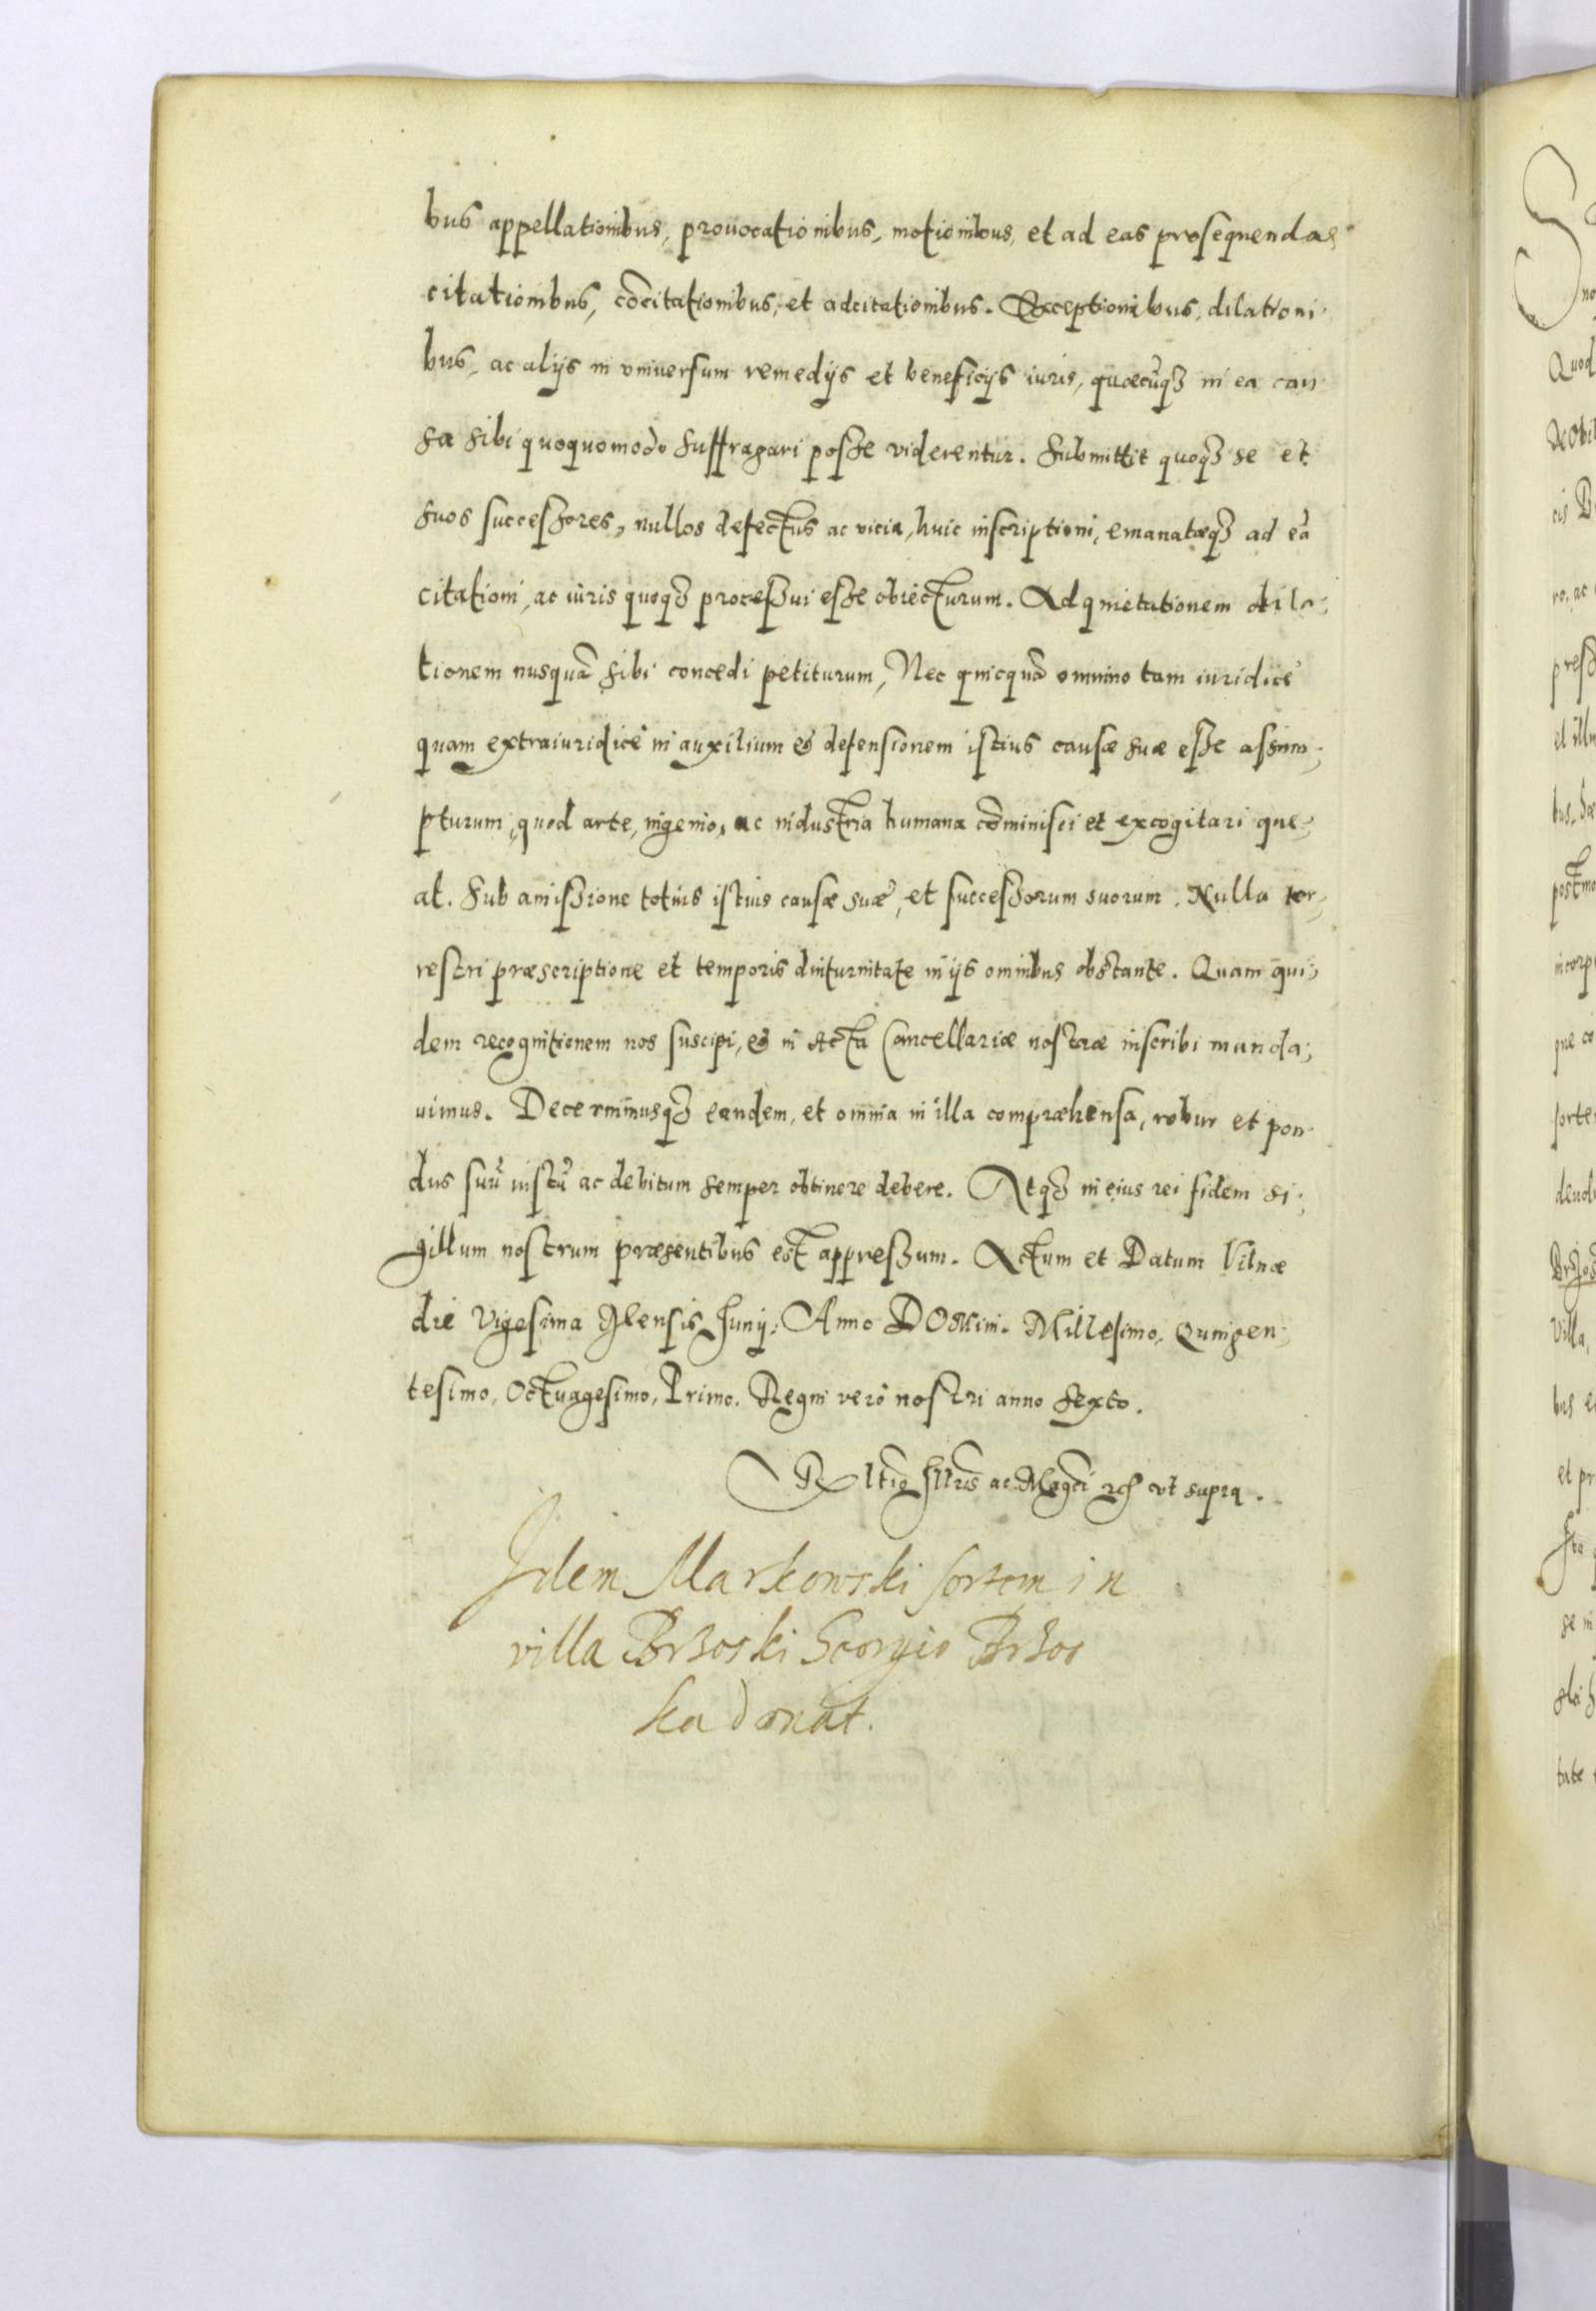 bus appellationibus, prouocationibus, motionibus, et ad eas prosequendas
citationibus, cōcitationibus, et adcitationibus. Exceptionibus, dilationi
bus, ac alijs in vniuersum remedijs et beneficijs iuris, quæcūqꝫ in ea cau
sa sibi quoquomodo suffragari posse viderentur. Submittit quoqꝫ se et
suos successores, nullos defectus ac vicia, huic inscriptioni, emanatæqꝫ ad eā
citationi, ac iuris quoqꝫ processui esse obiecturum. Ad quietationem dila,
tionem nusquā sibi concedi petiturum, Nec quicquā omnino tam iuridicè
quam extraiuridicè in auxilium & defensionem istius causæ suæ esse assum,
pturum, quod arte, ingenio, ac industria humana cōminisci et excogitari que,
at. Sub amissione totius istius causæ suæ, et successorum suorum. Nulla ter,
restri præscriptione et temporis diuturnitate in ijs omnibus obstante. Quam qui,
dem recognitionem nos suscipi, & in Acta Cancellariæ nostræ inscribi manda,
uimus. Decernimusqꝫ eandem, et omnia in illa compræhensa, robur et pon
dus suū iustū ac debitum semper obtinere debere. Atqꝫ in eius rei fidem si,
gillum nostrum præsentibus est appressum. Actum et Datum Vilnæ
die Vigesima Mensis Junij. Anno DOMini. Millesimo, Quingen,
tesimo, Octuagesimo, Primo. Regni verò nostri anno sexto.
Rltio Illris ac Magci ut supra.
Idem Markowski sortem in
villa Brzoski Georgio Brzos
ka donat.
Quod